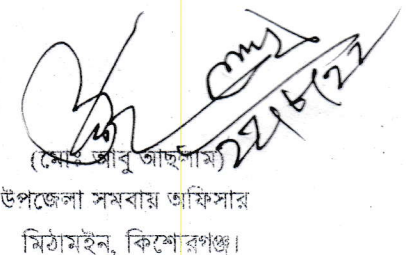 ২২/৮/২২
(মোঃ আবু আছলাম)
উপজেলা সমবায় অফিসার
মিঠামইন, কিশোরগঞ্জ।